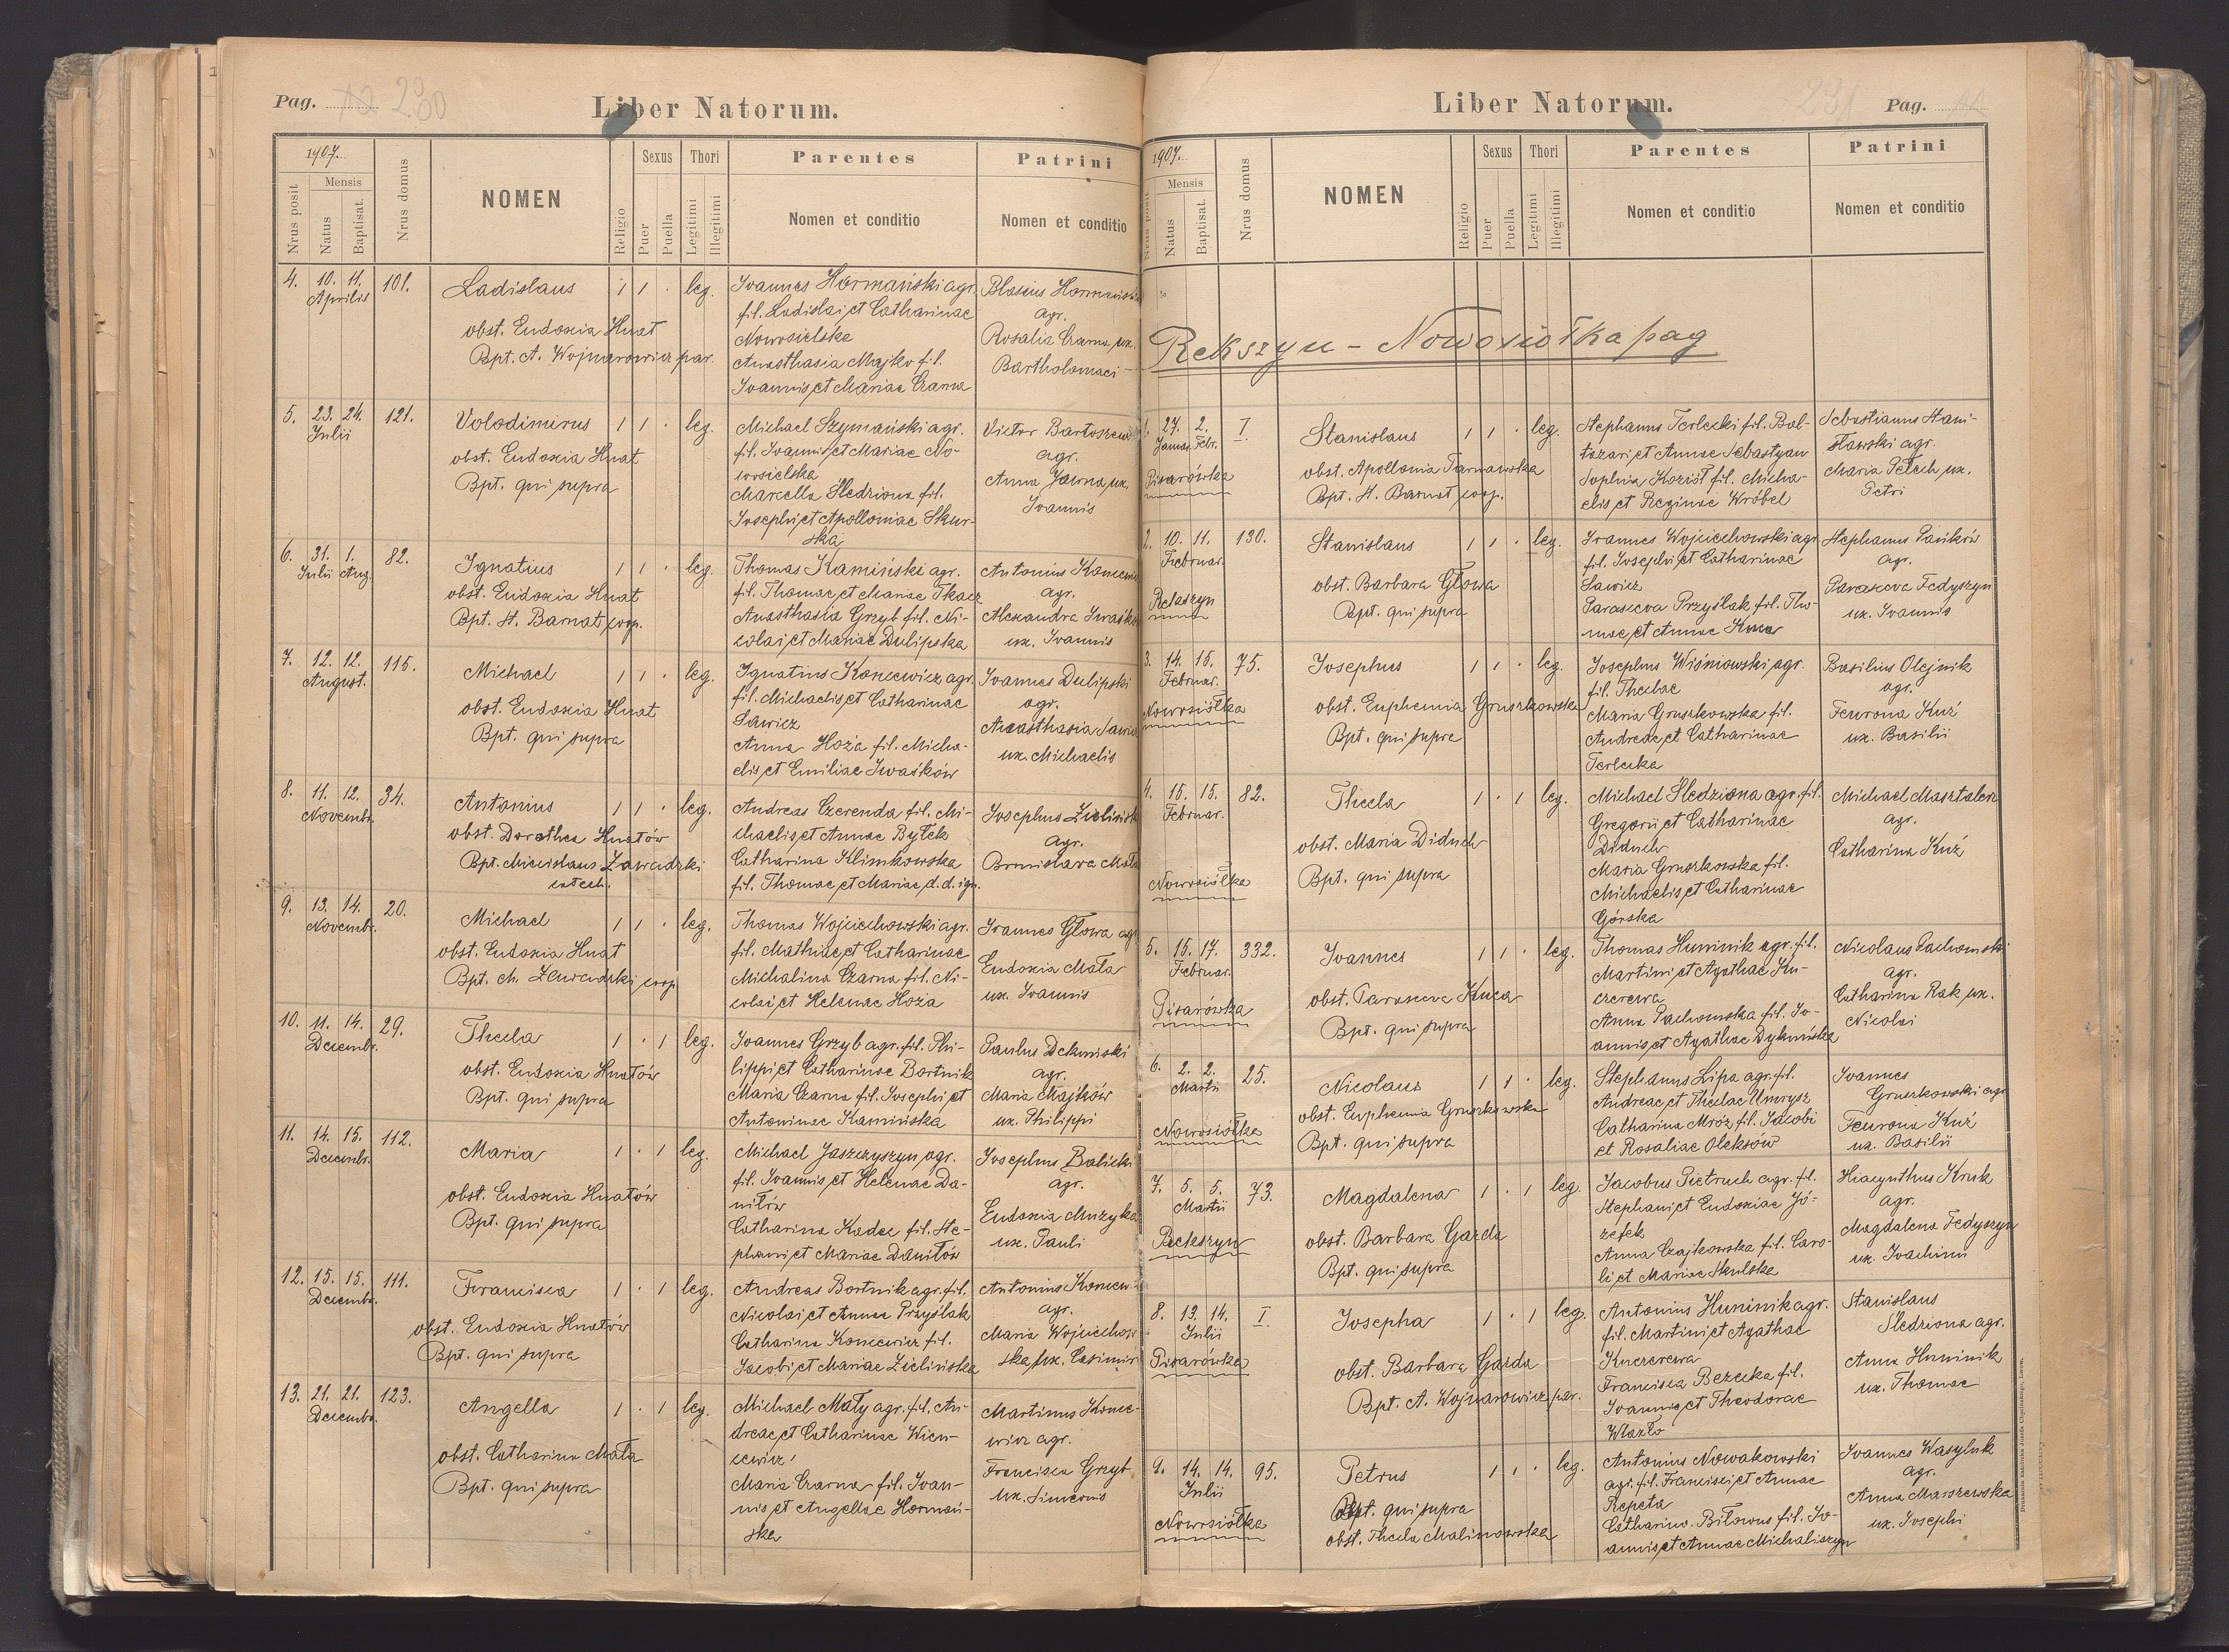 Pag. 200
Liber Natorum.
1907.
Nrus posit
Mensis
Natus
Baptisat.
Nrus domus
NOMEN
Religio
Sexus
Puer
Puella
Thori
Legitimi
Illegitimi
Parentes
Nomen et conditio
Patrini
Nomen et conditio
4. 10. 11. 101.
Aprilis
Ladislaus 1 1 · leg.
obst. Eudoxia Hnat
Bpt. A. Wojnarowicz par.
Joannes Hormański agr.
fil. Ladislai et Catharinae
Nowosielska
Anasthasia Majko fil.
Joannis et Mariae Czarna
Blasius Hormański
agr.
Rosalia Czarna ux.
Bartholomaei
5. 23. 24. 121.
Julii
Volodimirus 1 1 · leg.
obst. Eudoxia Hnat
Bpt. qui supra
Michael Szymański agr.
fil. Joannis et Mariae No-
wosielska
Marcella Śledziona fil.
Josephi et Apolloniae Skur-
ska
Victor
agr.
Anna Jawna ux.
Joannis
6. 31. 1. 82.
Julii Aug.
Ignatius 1 1 · leg.
obst. Eudoxia Hnat
Bpt. St. Barnat coop.
Thomas Kamiński agr.
fil. Thomae et Mariae Tkacz
Anasthasia Grzyb fil. Ni-
colai et Mariae Dulipska
Antonius
agr.
Alexandra
ux. Joannis
7. 12. 12. 115.
August.
Michael 1 1 · leg.
obst. Eudoxia Hnat
Bpt. qui supra
Ignatius Koncewicz agr.
fil. Michaelis et Catharinae
Sawicz
Anna Hoża fil. Micha-
elis et Emiliae Iwaśków
Joannes Dulipski
agr.
Anasthasia
ux. Michaelis
8. 11. 12. 34.
Novembr.
Antonius 1 1 · leg.
obst. Dorothea Hnatów
Bpt. Miecislaus Zawadzki
catech.
Andreas Czerenda fil. Mi-
chaelis et Annae Byłek
Catharina Klimkowska
fil. Thomae et Mariae, d. d. ign.
Josephus
agr.
Bronislava Mała
9. 13. 14. 20.
Novembr.
Michael 1 1 · leg.
obst. Eudoxia Hnat
Bpt. M. Zawadzki coop
Thomas Wojciechowski agr.
fil. Mathiae et Catharinae
Michalina Czarna fil. Ni-
colai et Helenae Hoża
Joannes Głowa agr
Eudoxia Mała
ux. Joannis
10. 11. 14. 29.
Decembr.
Thecla 1 · 1 leg.
obst. Eudoxia Hnatów
Bpt. qui supra
Joannes Grzyb agr. fil. Phi-
lippi et Catharinae Bortnik
Maria Czarna fil. Josephi et
Antoninae Kamińska
Paulus
agr.
Maria Majków
ux. Philippi
11. 14. 15. 112.
Decembr.
Maria 1 · 1 leg.
obst. Eudoxia Hnatów
Bpt. qui supra
Michael Jaszczyszyn agr.
fil. Joannis et Helenae Da-
niłów
Catharina Kadec fil. Ste-
phani et Mariae Daniłów
Josephus Balicki
agr.
Eudoxia Muzyka
ux. Pauli
12. 15. 15. 111.
Decembr.
Francisca 1 · 1 leg.
obst. Eudoxia Hnatów
Bpt. qui supra
Andreas Bortnik agr. fil.
Nicolai et Annae Przyślak
Catharina Koncewicz fil.
Jacobi et Mariae Zielińska
Antonius
agr.
Maria Wojciechow
ska ux. Casimiri
13. 21. 21. 123.
Decembr.
Angella 1 · 1 leg.
obst. Catharina Mała
Bpt. qui supra
Michael Mały agr. fil. An-
dreae et Catharinae Wien-
cewicz
Maria Czarna fil. Joan-
nis et Angellae Hormań-
ska
Martinus Konce-
wicz agr.
Francisca Grzyb
ux. Simeonis
Liber Natorum.
231 Pag.
1907.
Nrus posit
Mensis
Natus
Baptisat.
Nrus domus
NOMEN
Religio
Sexus
Puer
Puella
Thori
Legitimi
Illegitimi
Parentes
Nomen et conditio
Patrini
Nomen et conditio
Rekszyn - Nowosiołka pag
1. 27. 2. I.
Januar. Febr.
Pisarówka
Stanislaus 1 1 · leg.
obst. Apollonia Tarnawska
Bpt. St. Barnat coop.
Stephanus Terlecki fil. Bal-
tazari et Annae Sebastyan
Sophia Kozioł fil. Micha-
elis et Reginae Wróbel
Sebastianus Stani-
sławski agr.
Maria Petech ux.
Petri
2. 10. 11. 130.
Februar.
Rekszyn
Stanislaus 1 1 · leg.
obst. Barbara Głowa
Bpt. qui supra
Joannes Wojciechowski agr
fil. Josephi et Catharinae
Sawicz
Parasceva Przyślak fil. Tho-
mae et Annae
Stephanus Pańków
agr.
Parasceva Fedyszyn
ux. Joannis
3. 14. 15. 75.
Februar.
Nowosiółka
Josephus 1 1 · leg.
obst. Euphemia Gruszkowska
Bpt. qui supra
Josephus Wiśniowski agr.
fil. Theclae
Maria Gruszkowska fil.
Andreae et Catharinae
Terlecka
Basilius Olejnik
agr.
Fevrona Kuź
ux. Basilii
4. 15. 15. 82.
Februar.
Nowosiółka
Thecla 1 · 1 leg.
obst. Maria Diduch
Bpt. qui supra
Michael Śledziona agr. fil.
Gregorii et Catharinae
Diduch
Maria Gruszkowska fil.
Michaelis et Catharinae
Górska
Michael Masztalerz
agr.
Catharina Kuź
5. 15. 17. 332.
Februar.
Pisarówka
Joannes 1 1 · leg.
obst. Parasceva Kuca
Bpt. qui supra
Thomas Huminik agr. fil.
Martini et Agathae Ku-
czerewa
Anna Pachomska fil. Jo-
annis et Agathae Dykmińska
Nicolaus Pachomski
agr.
Catharina Rak ux.
Nicolai
6. 2. 2. 25.
Martii
Nowosiółka
Nicolaus 1 1 · leg.
obst. Euphemia Gruszkowska
Bpt. qui supra
Stephanus Lipa agr. fil.
Andreae et Theclae Umrysz
Catharina Mróz fil. Jacobi
et Rosaliae Oleksów
Joannes
Gruszkowski agr
Fevrona Kuź
ux. Basilii
7. 5. 5. 73.
Martii
Rekszyn
Magdalena 1 · 1 leg.
obst. Barbara Gazda
Bpt. qui supra
Jacobus Pietruch agr. fil.
Stephani et Eudoxiae Jó-
zefek
Anna Czajkowska fil. Caro-
li et Mariae Skulska
Hiacynthus Kruk
agr.
Magdalena Fedyszyn
ux. Joachimi
8. 13. 14. I.
Julii
Pisarówka
Josepha 1 · 1 leg.
obst. Barbara Gazda
Bpt. A. Wojnarowicz par.
Antonius Huminik agr.
fil. Martini et Agathae
Kuczerewa
Francisca Bezecka fil.
Joannis et Theodorae
Wlazło
Stanislaus
Śledziona agr.
Anna Huminik
ux. Thomae
9. 14. 14. 95.
Julii
Nowosiółka
Petrus 1 1 · leg.
Bpt. qui supra
obst. Thecla Malinowska
Antonius Nowakowski
agr. fil. Francisci et Annae
Repeta
Catharina Biłowus fil. Jo-
annis et Annae Michaliszyn
Joannes Wasyluk
agr.
Anna Marszewska
ux. Josephi